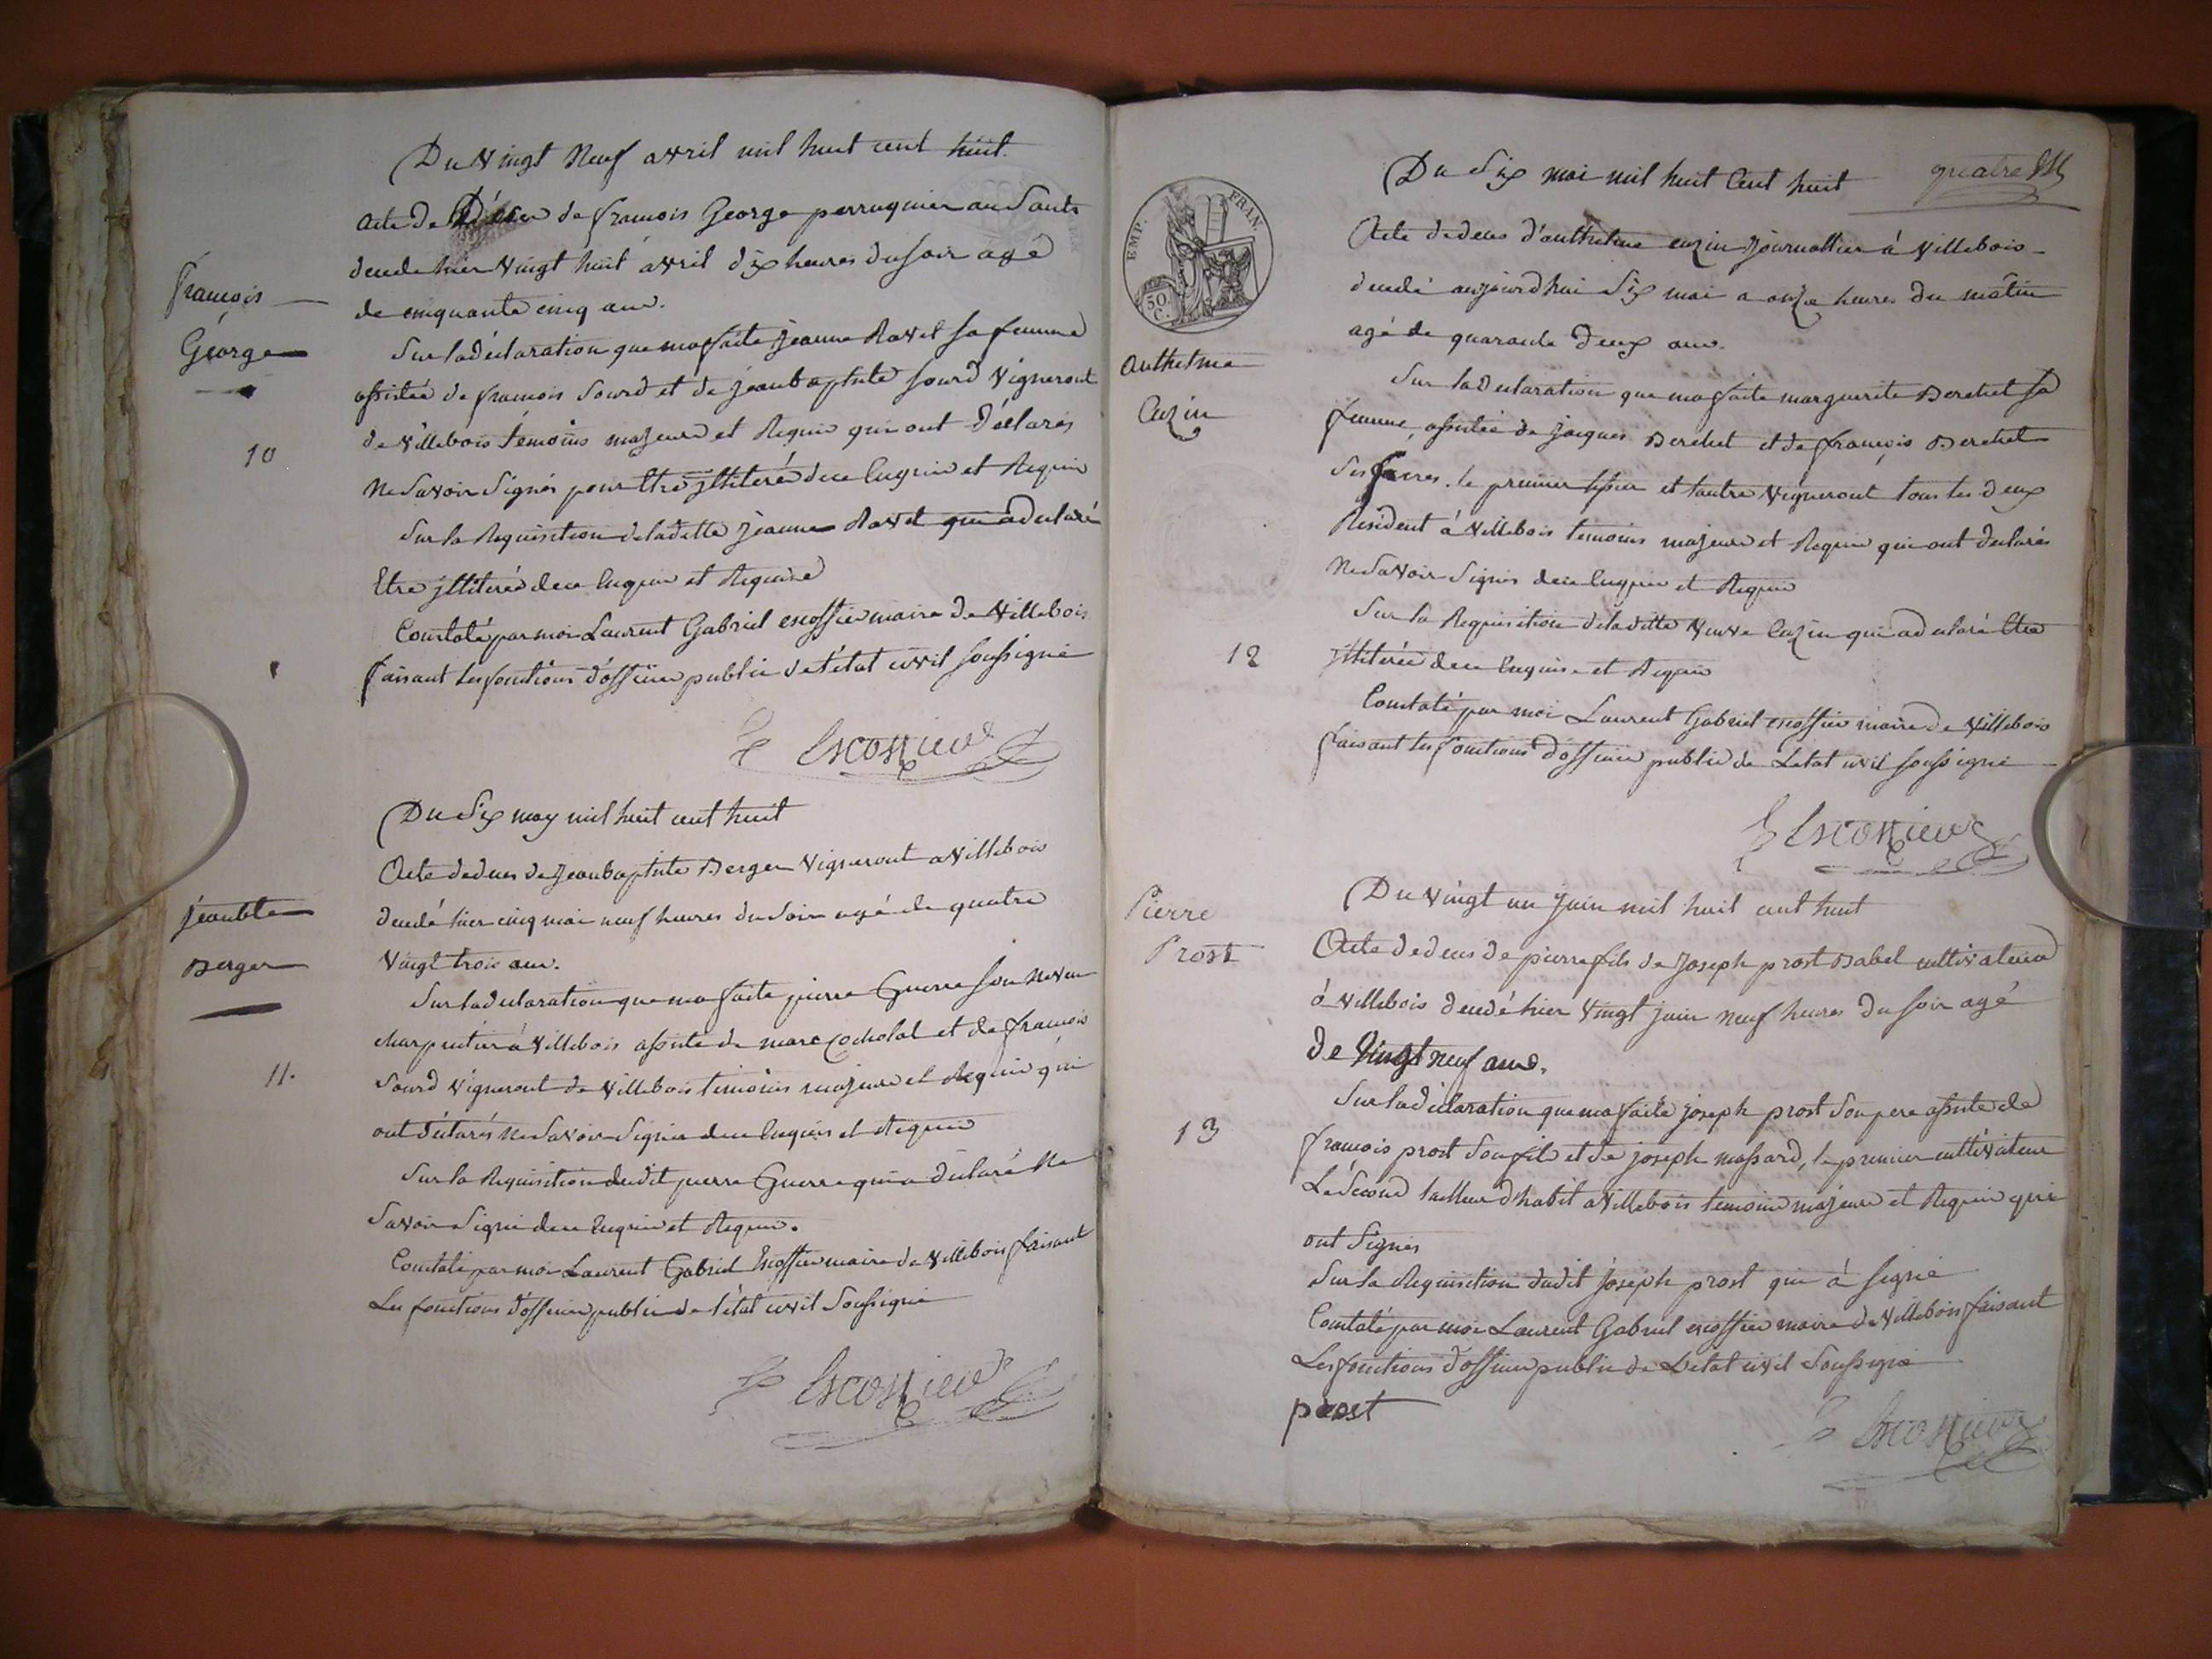 Du Vingt Neuf avril mil huit cent huit.
acte de Déces de françois George perruquier au Sault
decede hier Vingt huit avril dix heures du soir agé
de cinquante cinq ans.
françois
George
10
Sur la déclaration que ma faite jeanne Ravet sa femme
assistée de françois Sourd et de jeanbaptiste Sourd Vigneront
de Villebois témoins majeurs et Requis qui ont déclarés
Ne Savoir Signés pour être jlliteré de ce Enquis et Requis
Sur la Requisition de ladette jeanne Ravet qui a declaré
Etre jlliteré de ce Enquis et Requise
Constaté par moi Laurent Gabriel escoffier maire de Villebois
faisant les fonctions d'officier public de l'état civil soussigné
Escoffier
Du Six may mil huit cent huit
Acte de deces de Jeanbaptiste Berger Vigneront a Villebois
decedé hier cinq mai neuf heures du Soir agé de quatre
Vingt trois ans.
jeanbte
Berger
11.
Sur la declaration que ma faite pierre Guerre son neveu
charpentier à Villebois assisté de marc Cocholat et de françois
Sourd Vigneront de Villebois témoins majeurs et Requis qui
ont déclarés Ne Savoir Signés de ce Enquis et Requis
Sur la Requisition dudit pierre Guerre qui a déclaré Ne
Savoir Signé de ce Enquis et Requis.
Constaté par moi Laurent Gabriel Escoffier maire de Villebois faisant
Les fonctions d'officier public de l'état civil Soussigné
Escoffier
Du Six mai mil huit Cent huit
quatre
EMP. FRAN.
50 C.
Acte de deces d'anthelme cuzin Journallier à Villebois
decedé aujourd'hui Six mai a onze heures du matin
agé de quarante deux ans.
Anthelme
Cuzin
12
Sur la declaration que ma faite marguerite Berchet sa
femme, assistée de jacques Berchet et de françois Berchet
Ses freres. le premier tissier et l'autre Vigneront tous les deux
Resident à Villebois temoins majeurs et Requis qui ont declarés
Ne Savoir Signés de ce Enquis et Requis
Sur la Requisition de ladette Veuve Cuzin qui a declaré Etre
jlliterée de ce Enquise et Requis
Constaté par moi Laurent Gabriel escoffier maire de Villebois
faisant les fonctions d'officier public de Letat civil soussigné
Escoffier
Du Vingt un Juin mil huit cent huit
Acte de deces de pierre fils de Joseph prost Babel cultivateur
à Villebois decedé hier Vingt juin neuf heures du soir agé
de Vingt neuf ans.
Pierre
Prost
13
Sur la déclaration que ma faite joseph prost Son pere assisté de
françois prost Son fils et de joseph massard, le premier cultivateur
Le Second tailleur d'habit a Villebois temoins majeurs et Requis qui
ont Signés
Sur la Requisition dudit joseph prost qui à signé
Constaté par moi Laurent Gabriel escoffier maire de Villebois faisant
Les fonctions d'officier public de Letat civil Soussigné
prost
Escoffier